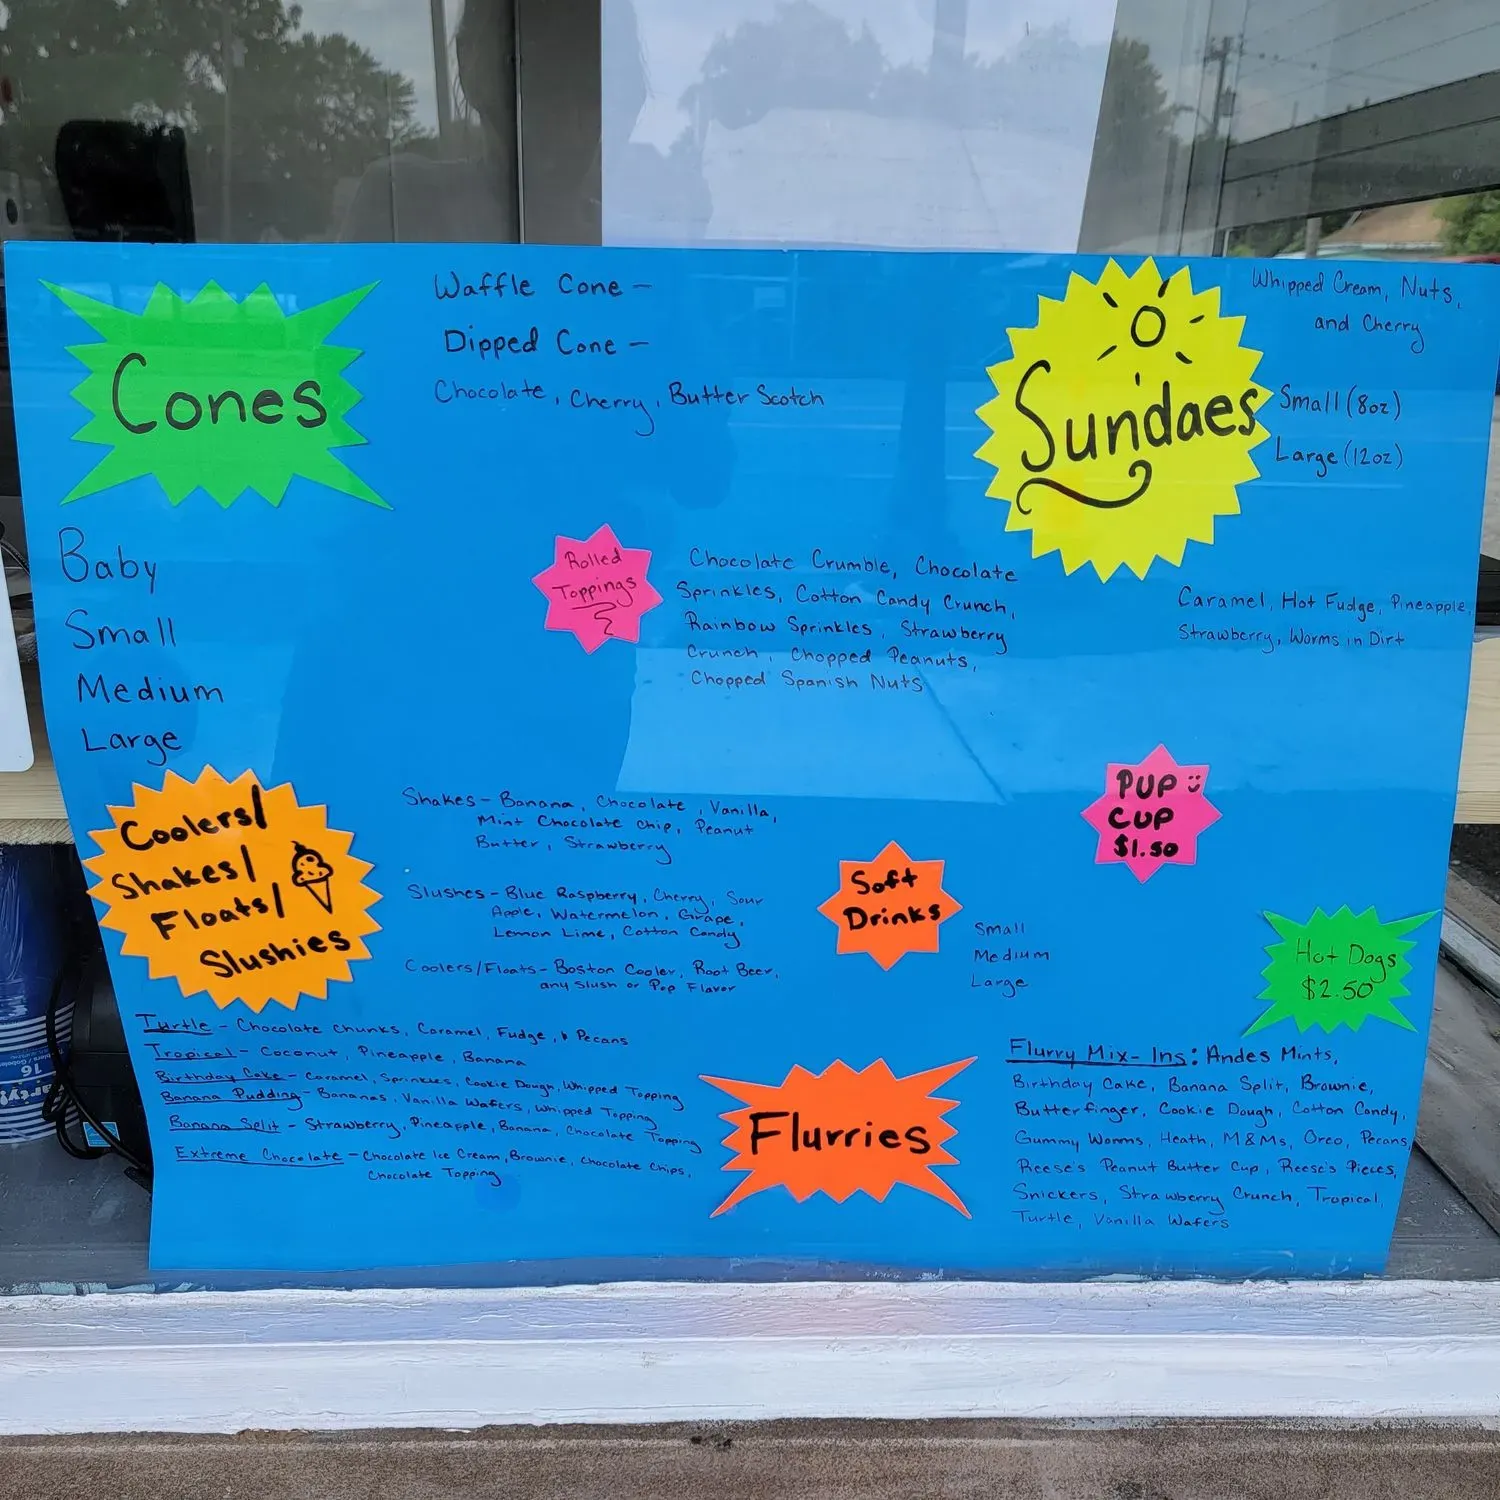 Cones
Waffle Cone -
Dipped Cone -
Chocolate, Cherry, Butter Scotch
Baby
Small
Medium
Large
Sundaes
Whipped Cream, Nuts,
and Cherry
Small (8oz)
Large (12oz)
Caramel, Hot Fudge, Pineapple,
Strawberry, Worms in Dirt
Rolled
Toppings
Chocolate Crumble, Chocolate
Sprinkles, Cotton Candy Crunch,
Rainbow Sprinkles, Strawberry
Crunch, Chopped Peanuts,
Chopped Spanish Nuts
Coolers/
Shakes/
Floats/
Slushies
Shakes - Banana, Chocolate, Vanilla,
Mint Chocolate Chip, Peanut
Butter, Strawberry
Slushes - Blue Raspberry, Cherry, Sour
Apple, Watermelon, Grape,
Lemon Lime, Cotton Candy
Coolers/Floats - Boston Cooler, Root Beer,
any Slush or Pop Flavor
PUP
CUP
$1.50
Soft
Drinks
Small
Medium
Large
Hot Dogs
$2.50
Turtle - Chocolate Chunks, Caramel, Fudge, + Pecans
Tropical - Coconut, Pineapple, Banana
Birthday Cake - Caramel, Sprinkles, Cookie Dough, Whipped Topping
Banana Pudding - Bananas, Vanilla Wafers, Whipped Topping
Banana Split - Strawberry, Pineapple, Banana, Chocolate Topping
Extreme Chocolate - Chocolate Ice Cream, Brownie, Chocolate Chips,
Chocolate Topping
Flurries
Flurry Mix-Ins: Andes Mints,
Birthday Cake, Banana Split, Brownie,
Butterfinger, Cookie Dough, Cotton Candy,
Gummy Worms, Heath, M&Ms, Oreo, Pecans,
Reese's Peanut Butter Cup, Reese's Pieces,
Snickers, Strawberry Crunch, Tropical,
Turtle, Vanilla Wafers
16